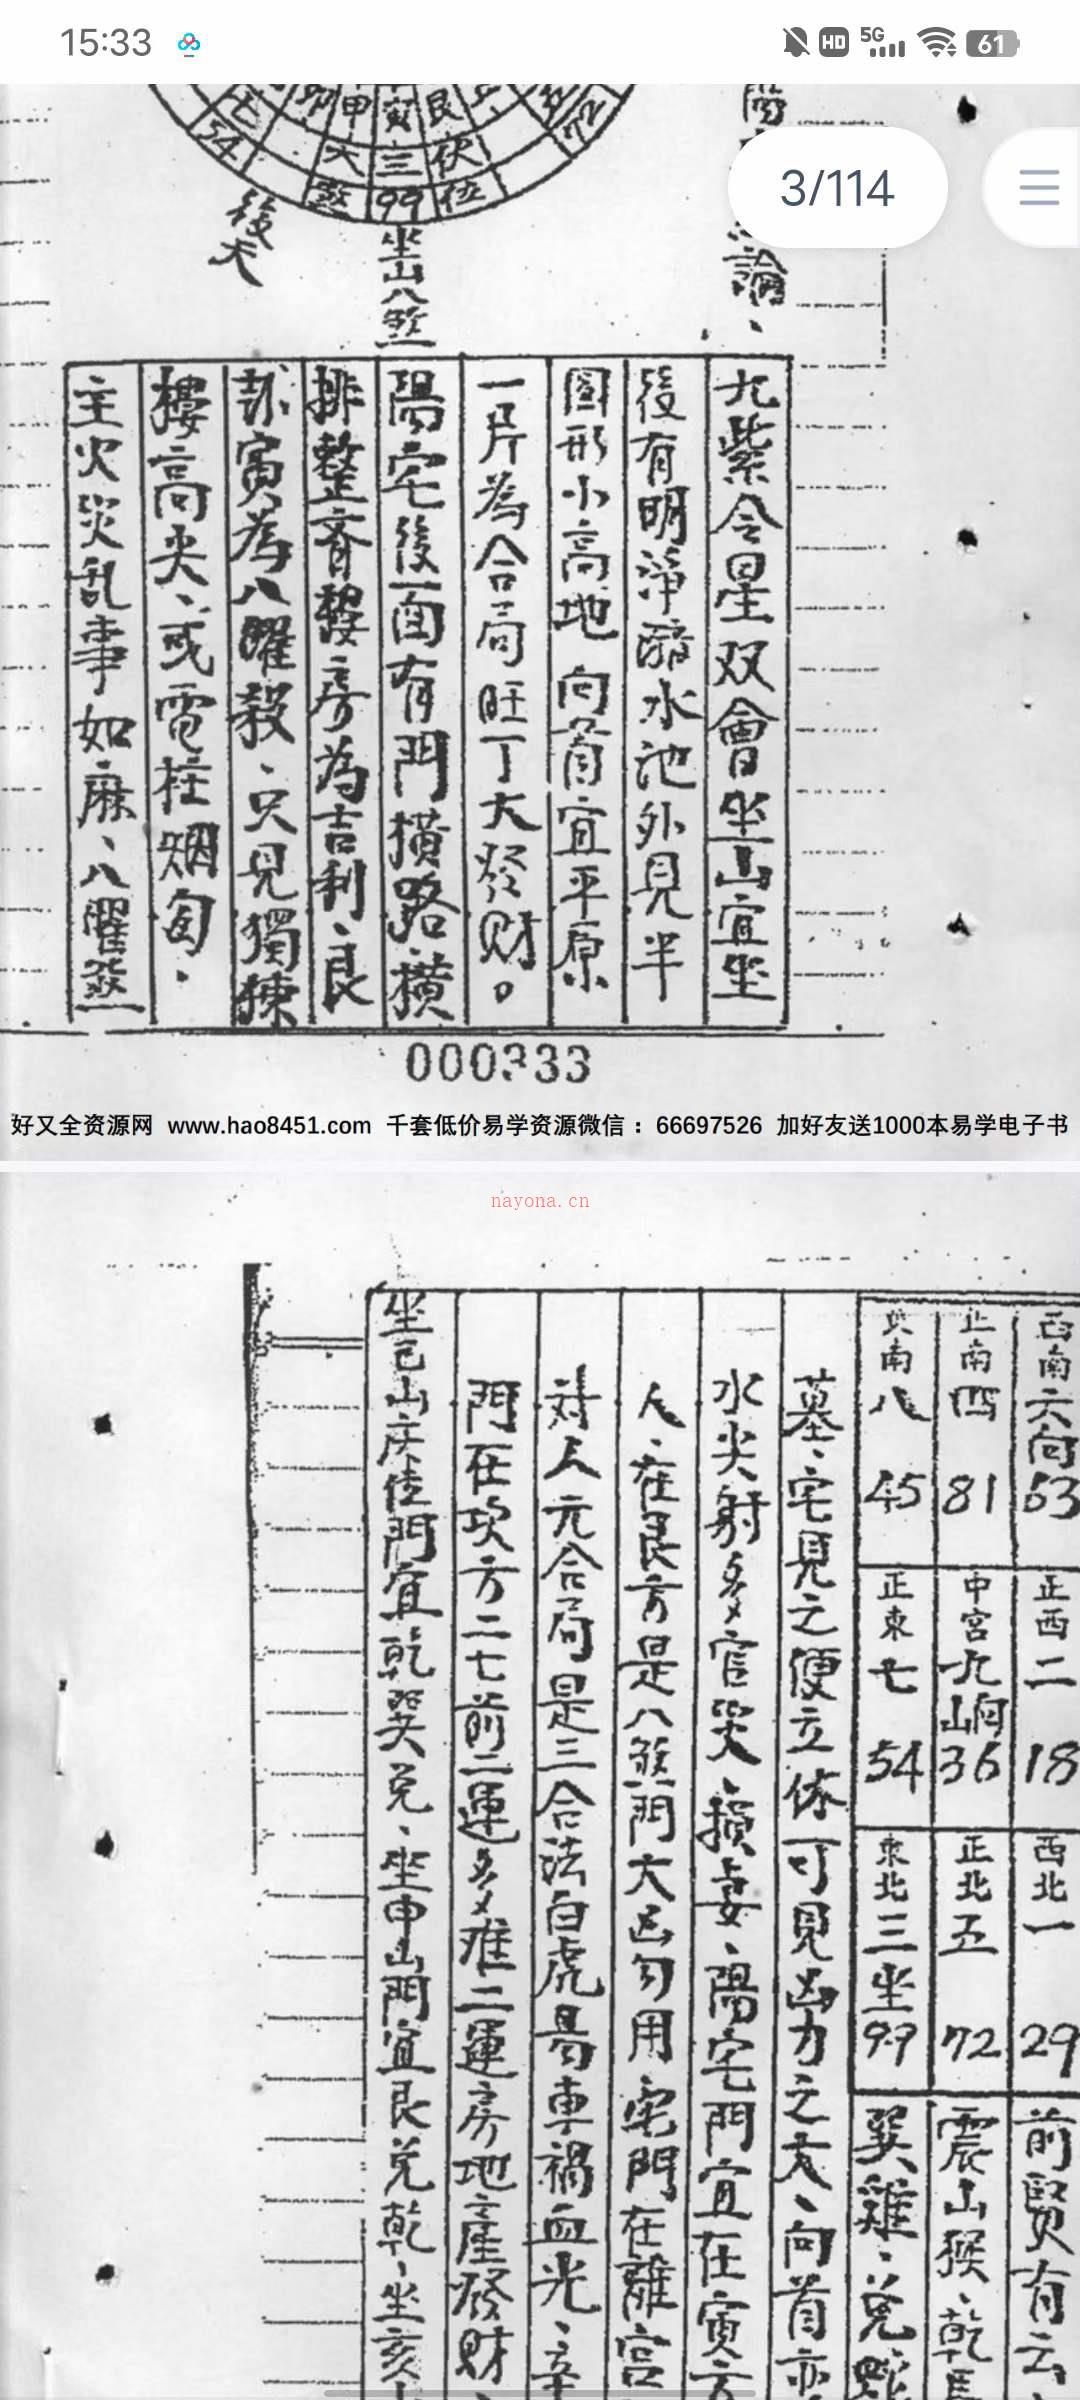 15:33
HD
5G
61
3/114
七
54
甲
寅
艮
72
大
三
伏
煞
99
位
後天
坐山八煞
論、
九紫令星双會坐山宜坐
後有明淨 水池外見半
圆形小高地向首宜平原
一片為合局旺丁大發财。
陽宅後面有門横路、横
排整齊 房為吉利、艮
寅為八曜殺、只見獨棟
樓高尖、或電柱烟囱。
主火災乱事如麻、八曜煞
000333
好又全资源网 www.hao8451.com 千套低价易学资源微信：66697526 加好友送1000本易学电子书
nayona.cn
西南六向53
正南四 81
東南八 45
正西二 18
中宮九山向36
正東七 54
西北一 29
正北五 72
東北三坐99
前賢有云、
震山猴、乾馬
巽雞、兌蛇
墓、宅見之便立休可見凶力之大、向首亦
水尖射多官哭、損妻、陽宅門宜在寅方
人、在艮方是八煞門大凶勿用宅門在離宮
对人元合局是三合法白虎易車禍血光、辛
門在坎方二七前二運多难二運房地產發财、
坐巳山庚 門宜乾巽兌、坐申山門宜艮兌乾、坐亥